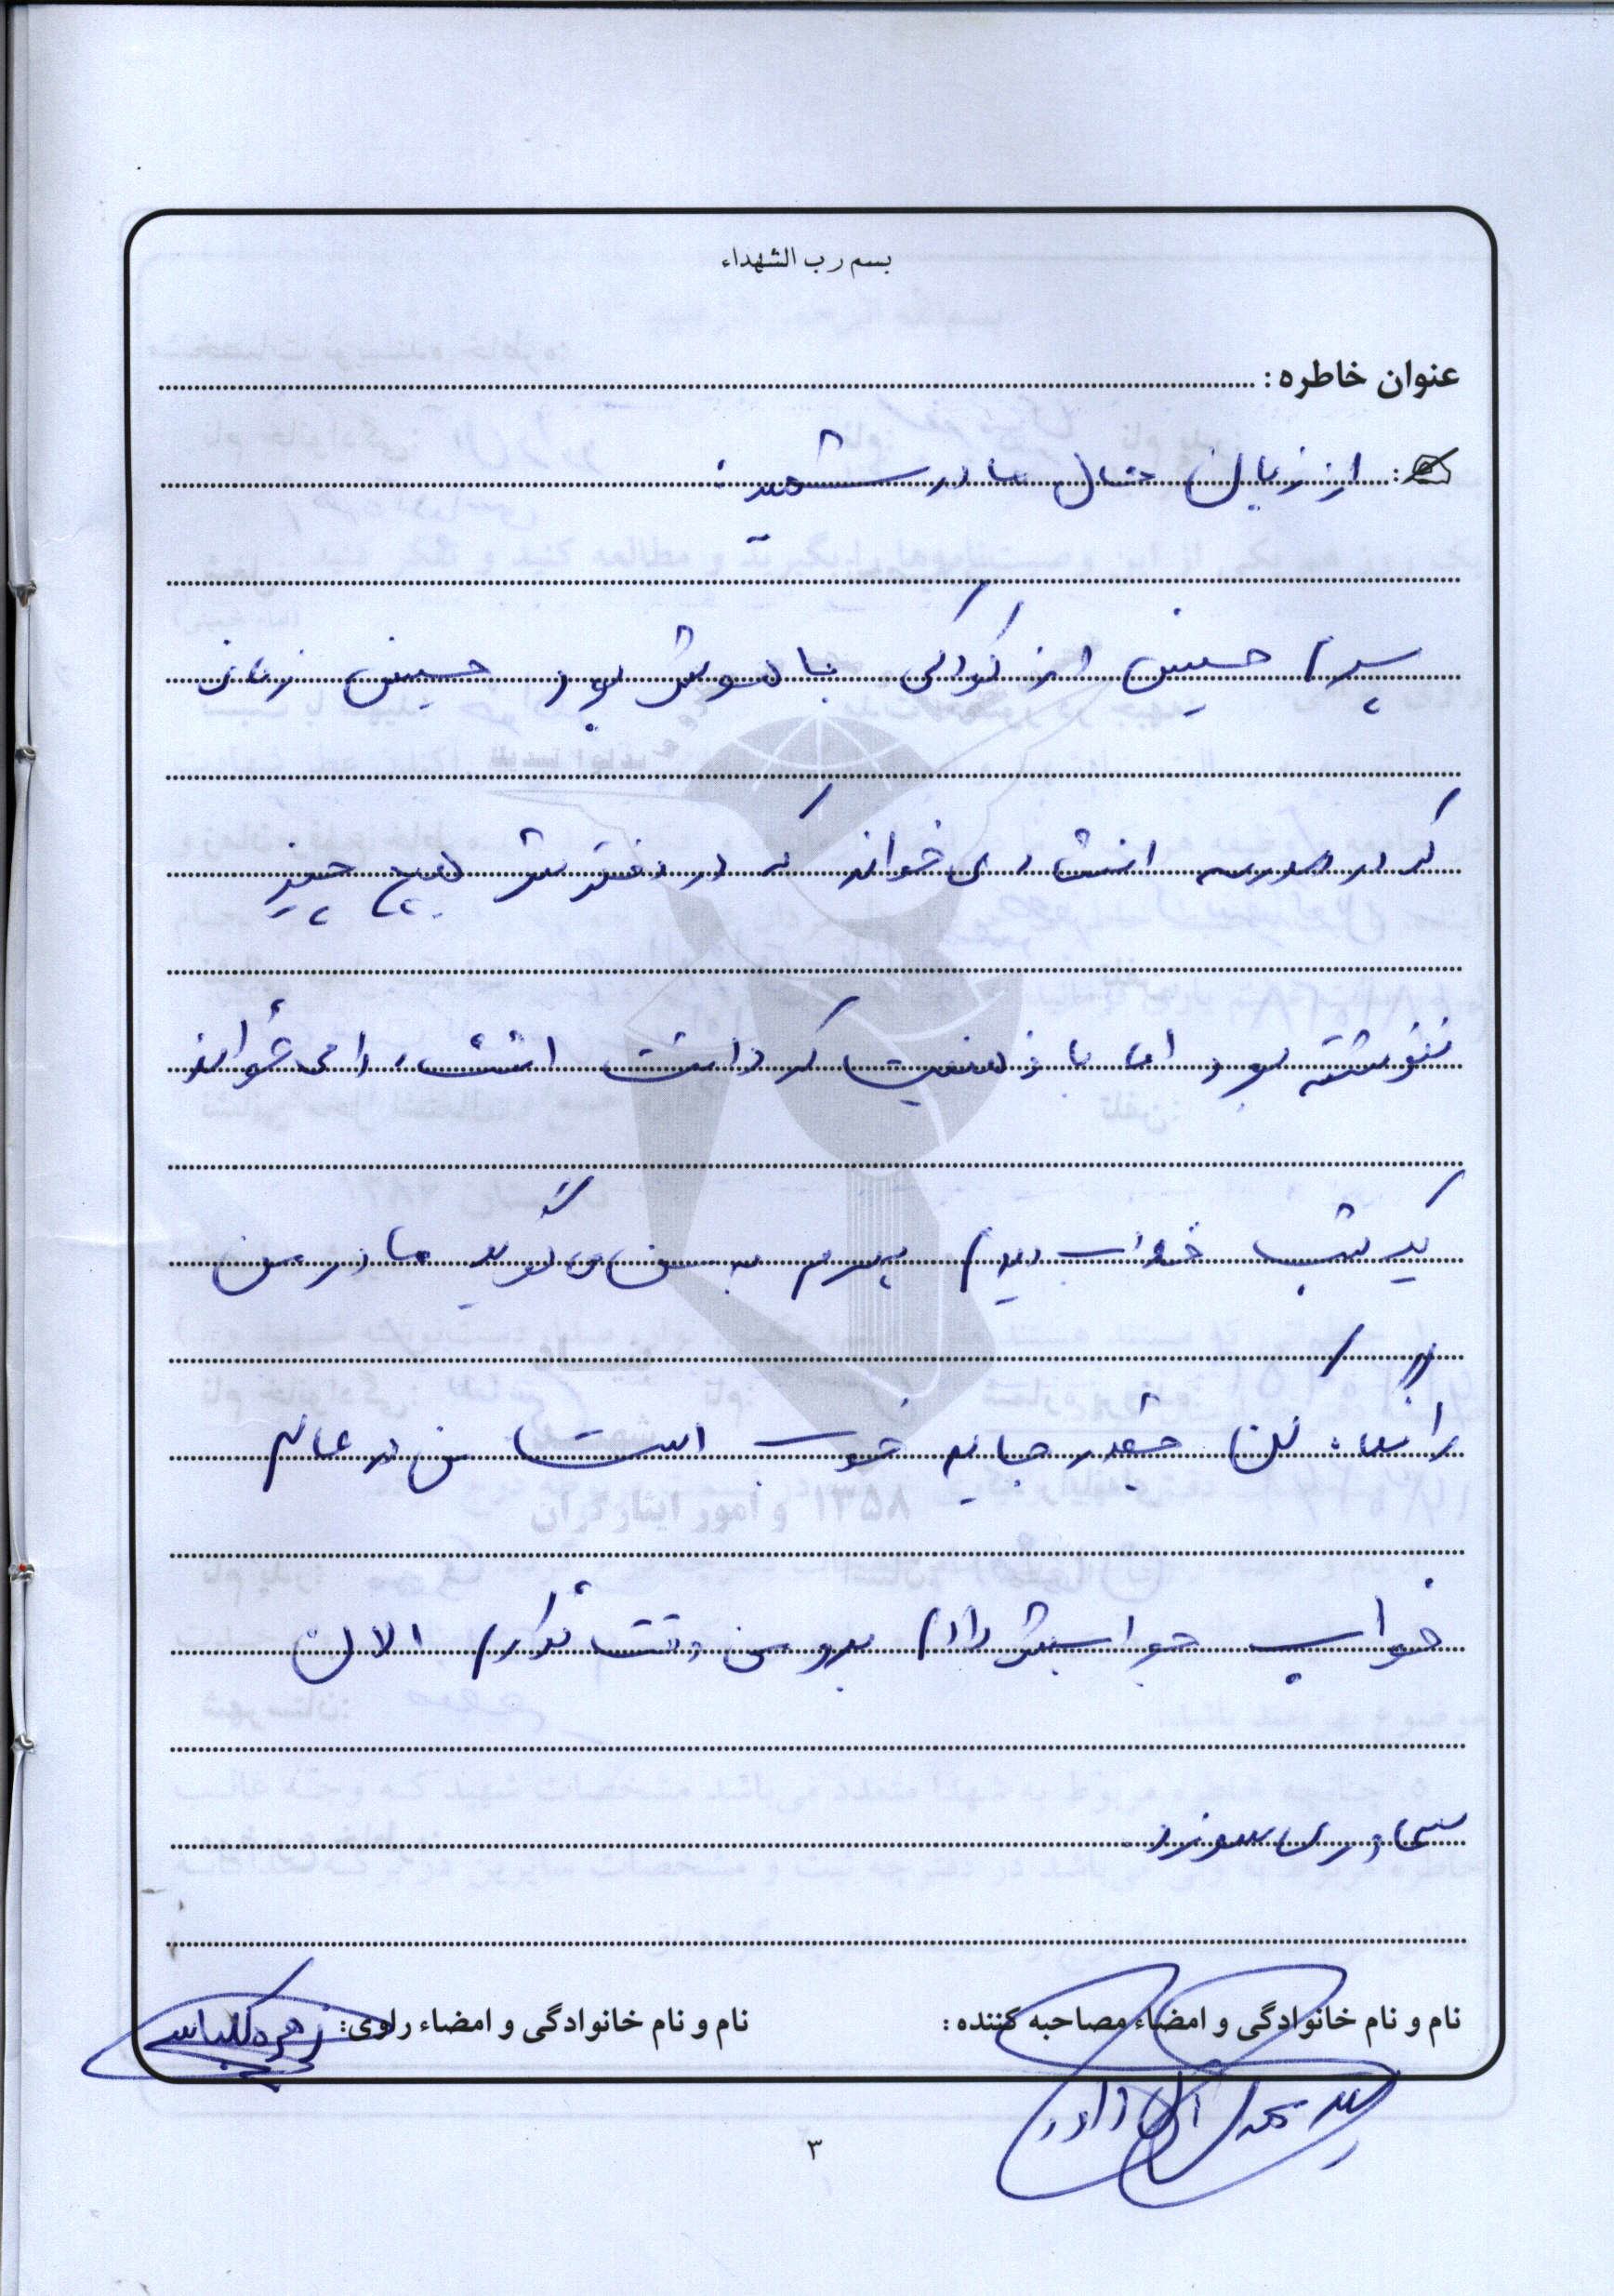 بسم رب الشهداء
عنوان خاطره :
از زبان حال مادر شهید :
پسرم حسین از کودکی با هوش بود حسین زمانی
که در مدرسه انشاء می خواند که در دفترش هیچ چیز
ننوشته بود اما با ذهنیت که داشت انشاء را می خواند
یک شب خواب دیدم پسرم به من می گوید مادر من
را نگاه کن چقدر جایم خوب است من در عالم
خواب جوابش دادم برو من وقت ندارم الان
سماور می سوزد.
نام و نام خانوادگی و امضاء مصاحبه کننده :
نام و نام خانوادگی و امضاء راوی:
سید محمد آل داود
۳